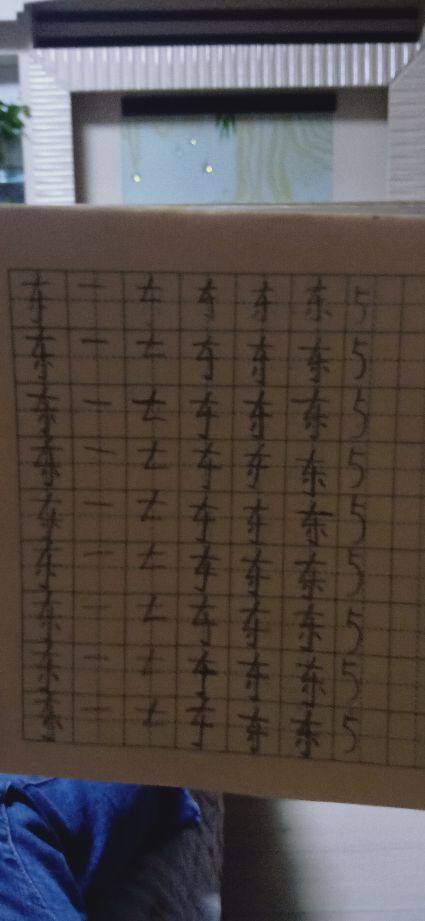 东 一 𠂇 车 车 东 5
东 一 𠂇 车 东 东 5
东 一 𠂇 车 东 东 5
东 一 𠂇 车 车 东 5
东 一 𠂇 车 东 东 5
东 一 𠂇 车 东 东 5
东 一 𠂇 车 东 东 5
东 一 𠂇 车 东 东 5
东 一 𠂇 车 东 东 5